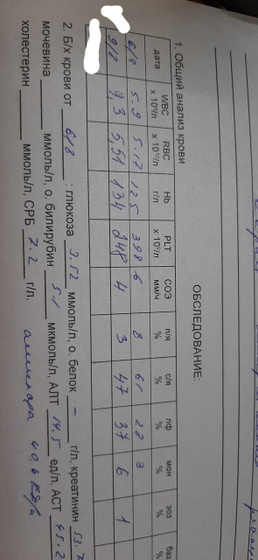 ОБСЛЕДОВАНИЕ:
1. Общий анализ крови
дата WBC х 10⁹/л RBC х 10¹²/л Hb г/л PLT х 10⁹/л СОЭ мм/ч п/я % с/я % лф % мон % эоз % баз
6/8 5.9 5.17 125 398 6 8 61 28 3
9/8 9,3 5,51 134 248 4 3 47 37 6 1
2. Б/х крови от 6/8 : глюкоза 3.52 ммоль/л, о. белок – г/л, креатинин 53.7
мочевина ммоль/л, о. билирубин 5.1 мкмоль/л, АЛТ 14.5 ед/л, АСТ 45.2
холестерин ммоль/л, СРБ 7.2 г/л. амилаза 40,6